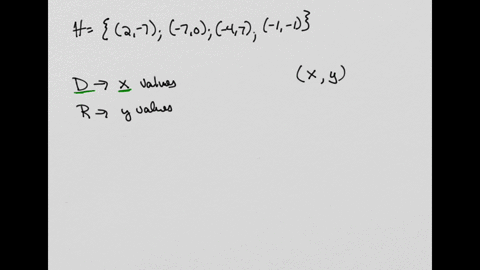 H = { (2,-7); (-7,0); (-4,7); (-1,-1)}
D → x values
(x, y)
R → y values